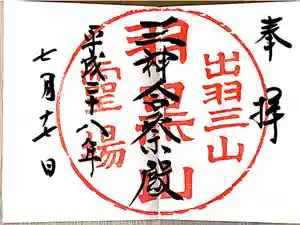 奉拝
出羽三山
羽黒山
三神合祭殿
平成二十八年
七月十七日